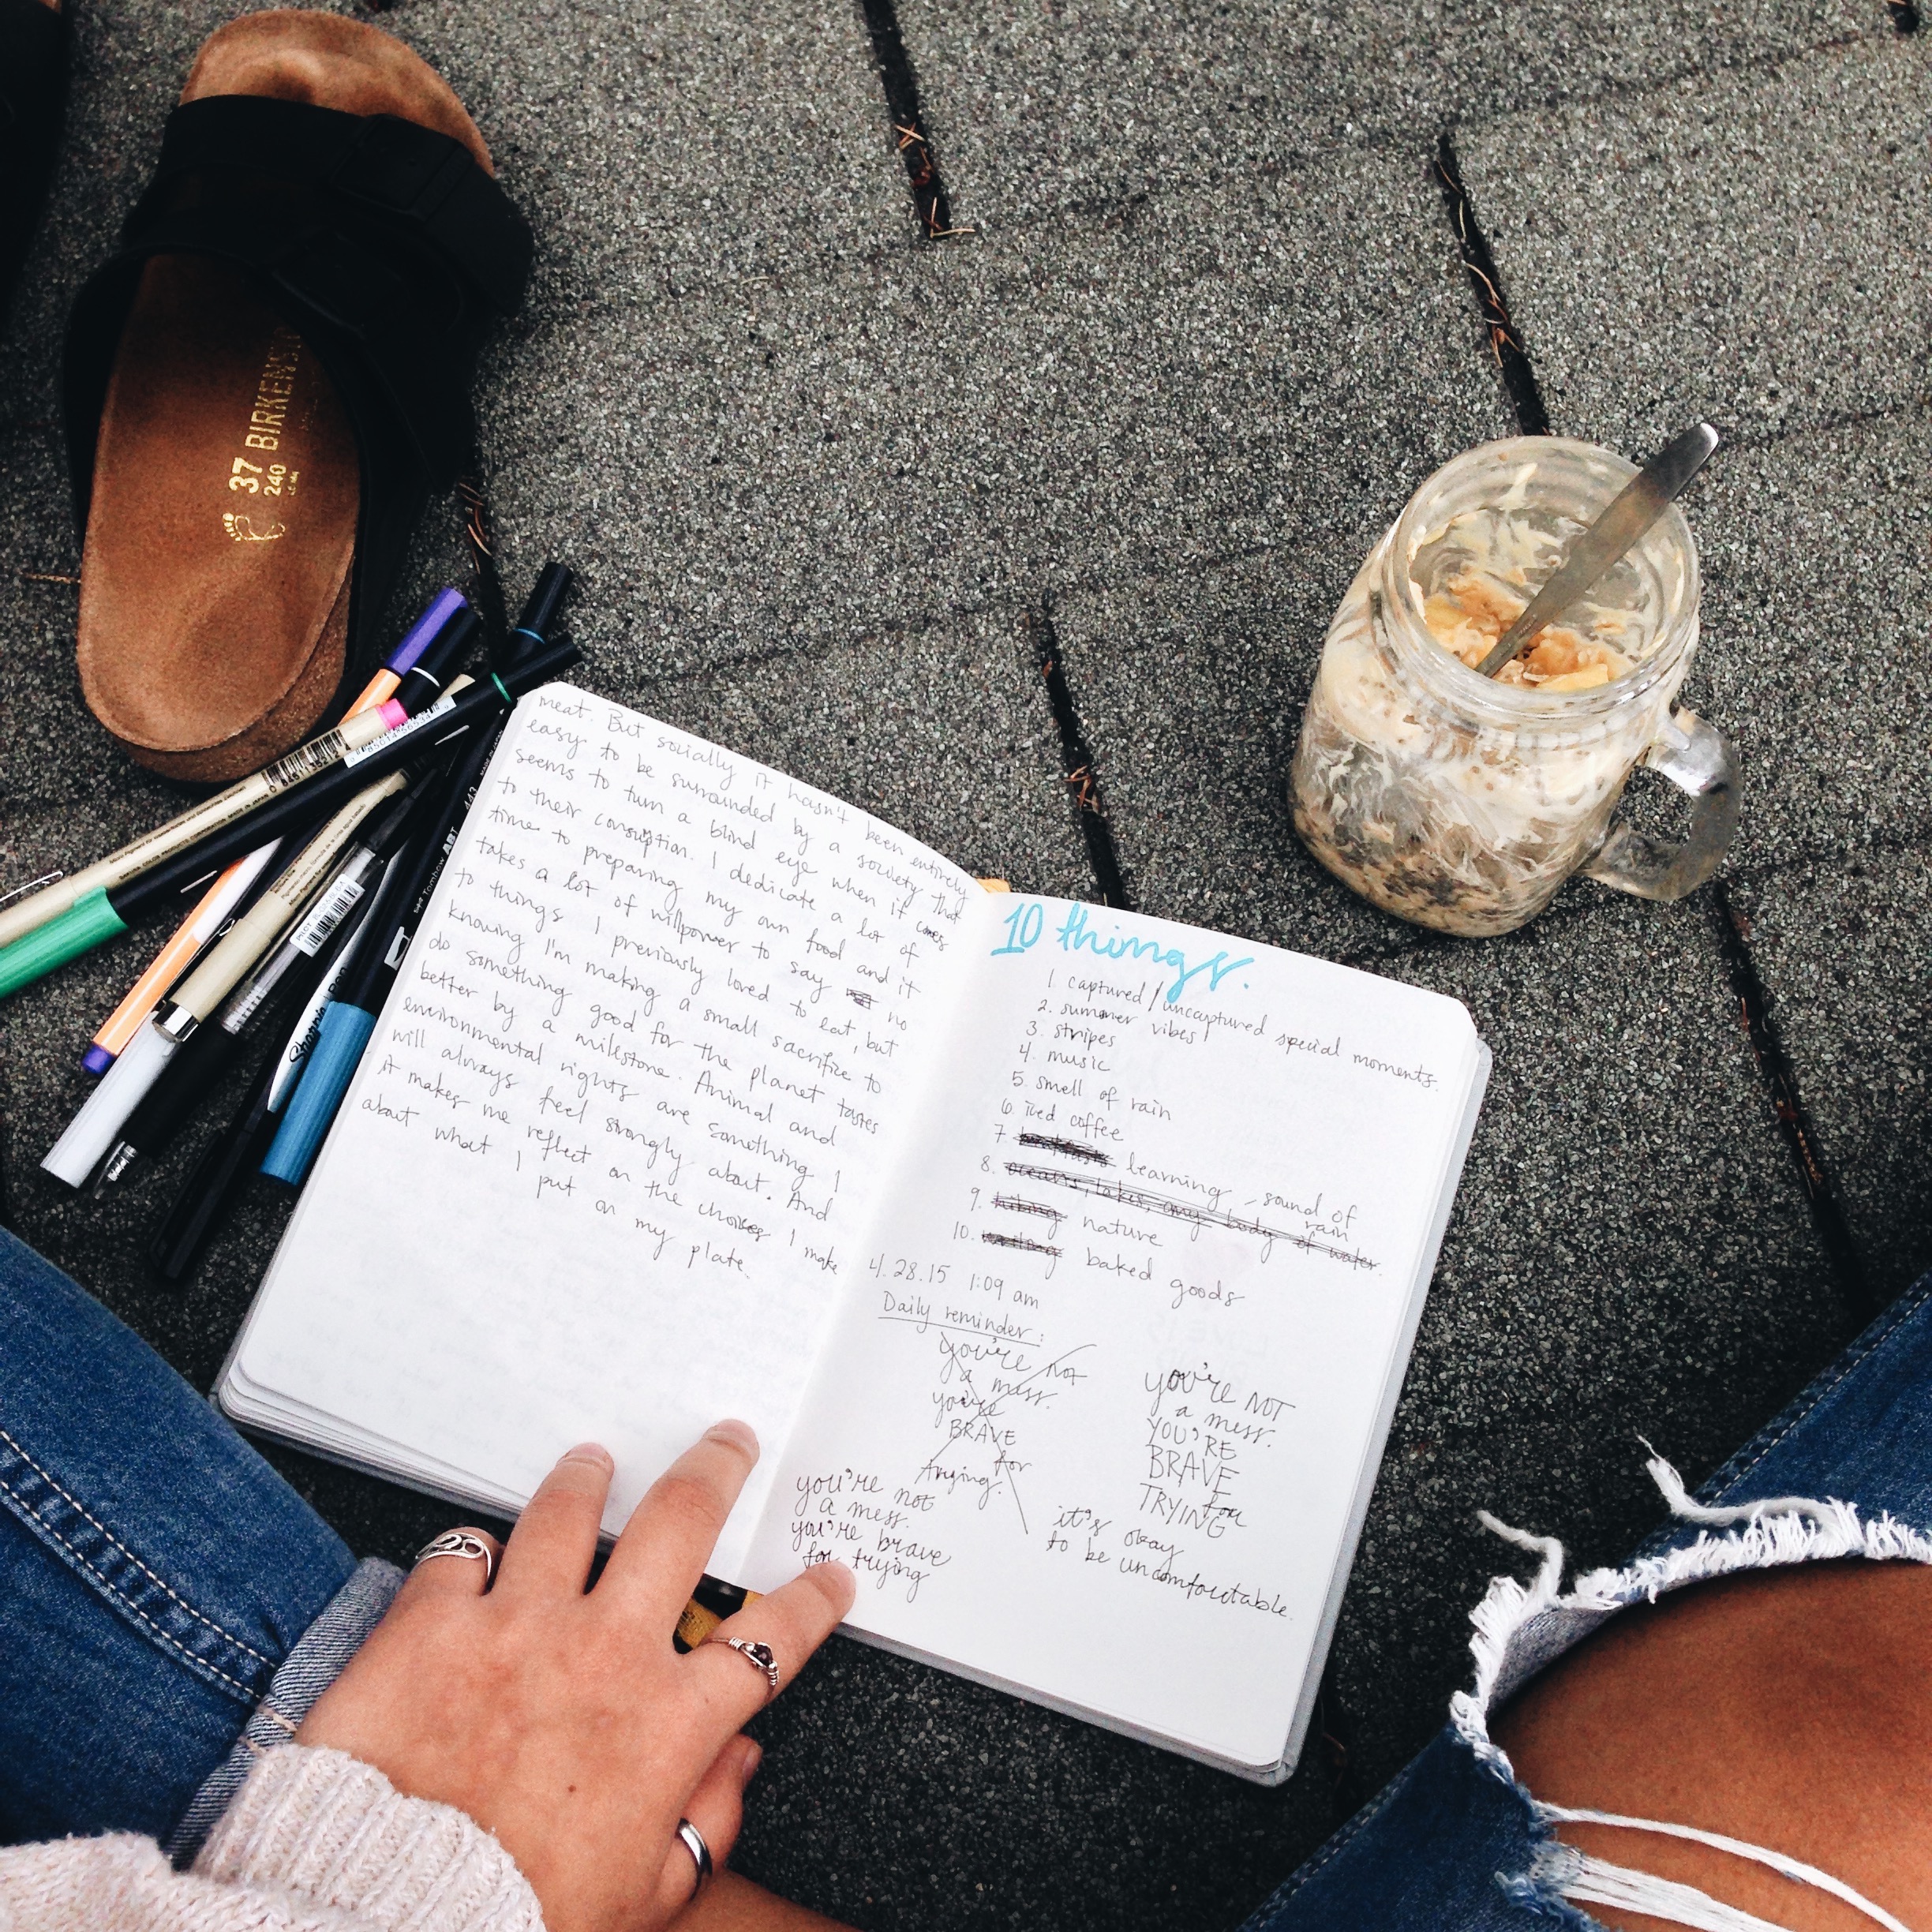 37 BIRKENST
240
meat. But socially it hasn't been entirely
easy to be surrounded by a society that
seems to turn a blind eye when it comes
to their consuption. I dedicate a lot of
time to preparing my own food and it
takes a lot of willpower to say no
to things I previously loved to eat, but
knowing I'm making a small sacrifice to
do something good for the planet tastes
better by a milestone. Animal and
environmental rights are something I
will always feel strongly about. And
it makes me reflect on the choices I make
about what I put on my plate.
10 things.
1. captured/uncaptured special moments.
2. summer vibes!
3. stripes
4. music
5. smell of rain
6. iced coffee
7. learning, sound of rain
8. oceans, lakes, any body of water.
9. hiking nature
10. baked goods
4.28.15 1:09 am
Daily reminder:
you're not
a mess.
you're
BRAVE
for
trying.
you're NOT
a mess.
YOU'RE
BRAVE
for
TRYING
you're not
a mess.
you're brave
for trying
it's okay
to be uncomfortable.
Sharpie
Tombow
443
PILOT